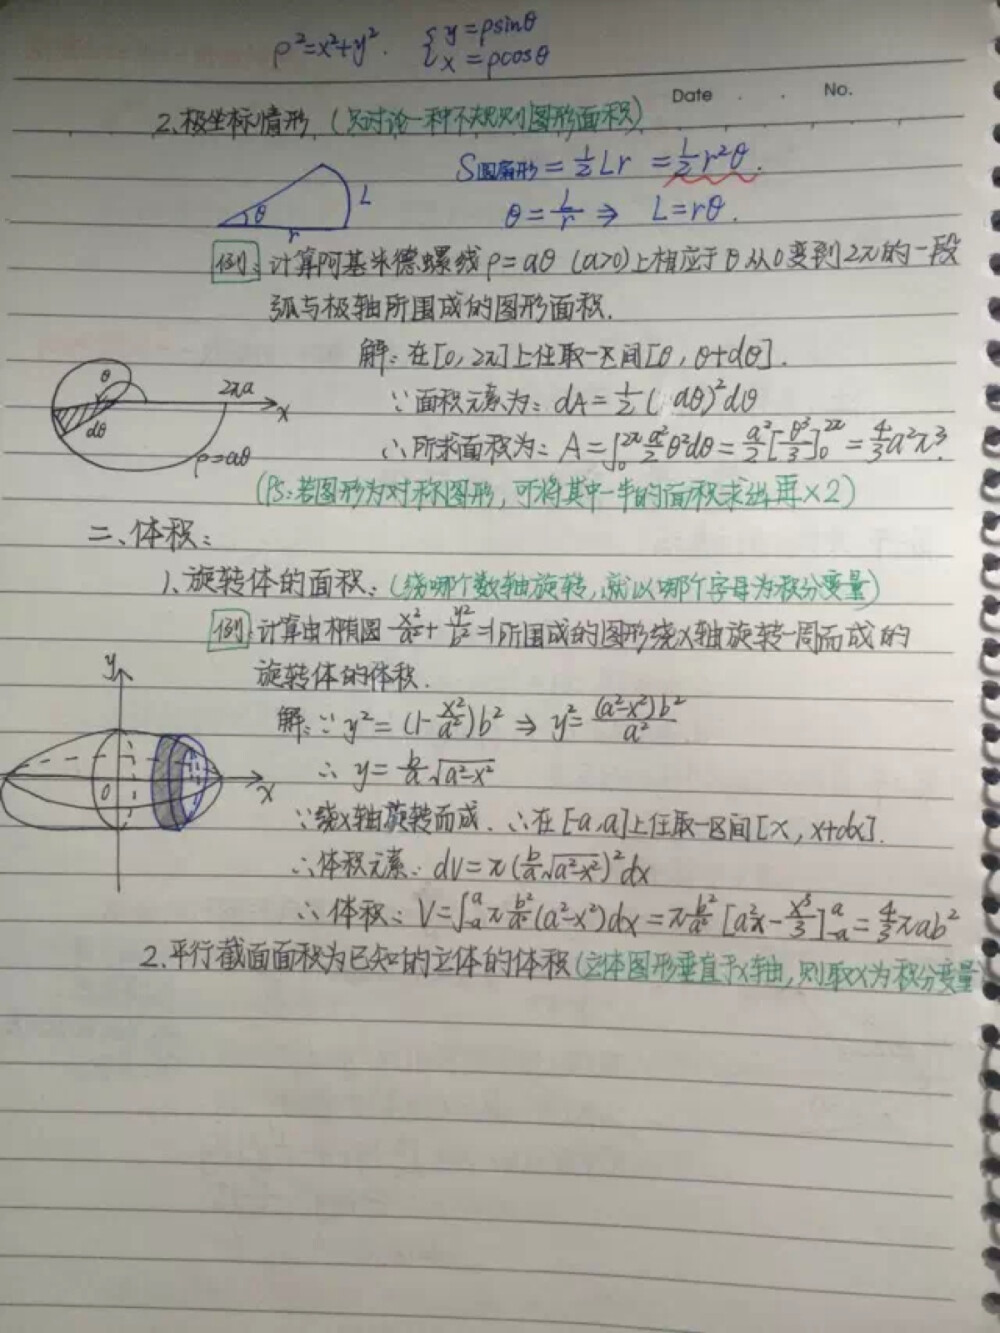 ρ²=x²+y². { y=ρsinθ
x=ρcosθ
Date . . No.
2、极坐标情形 (只讨论一种不规则图形面积)
S圆扇形=½Lr=½r²θ.
θ L r
θ=L/r ⇒ L=rθ.
例: 计算阿基米德螺线ρ=aθ (a>0)上相应于θ从0变到2π的一段
弧与极轴所围成的图形面积.
解: 在[0, 2π]上任取一区间[θ, θ+dθ].
θ 2πa x
dθ ρ=aθ
∵面积元素为: dA=½(aθ)²dθ
∴所求面积为: A=∫₀^2π a²/2 θ²dθ=a²/2[θ³/3]₀^2π=4/3a²π³.
(PS:若图形为对称图形,可将其中一半的面积求出再×2)
二、体积:
1、旋转体的面积: (绕哪个数轴旋转,就以哪个字母为积分变量)
例: 计算由椭圆x²/a²+y²/b²=1所围成的图形绕x轴旋转一周而成的
旋转体的体积.
y 0 x
解: ∵y²=(1-x²/a²)b² ⇒ y²=(a²-x²)b²/a²
∴ y=b/a√(a²-x²)
∵绕x轴旋转而成. ∴在[-a,a]上任取一区间[x, x+dx].
∴体积元素: dV=π(b/a√(a²-x²))²dx
∴体积: V=∫₋ₐ^a π b²/a²(a²-x²)dx=π b²/a²[a²x-x³/3]₋ₐ^a=4/3πab²
2.平行截面面积为已知的立体的体积(立体图形垂直于x轴,则取x为积分变量